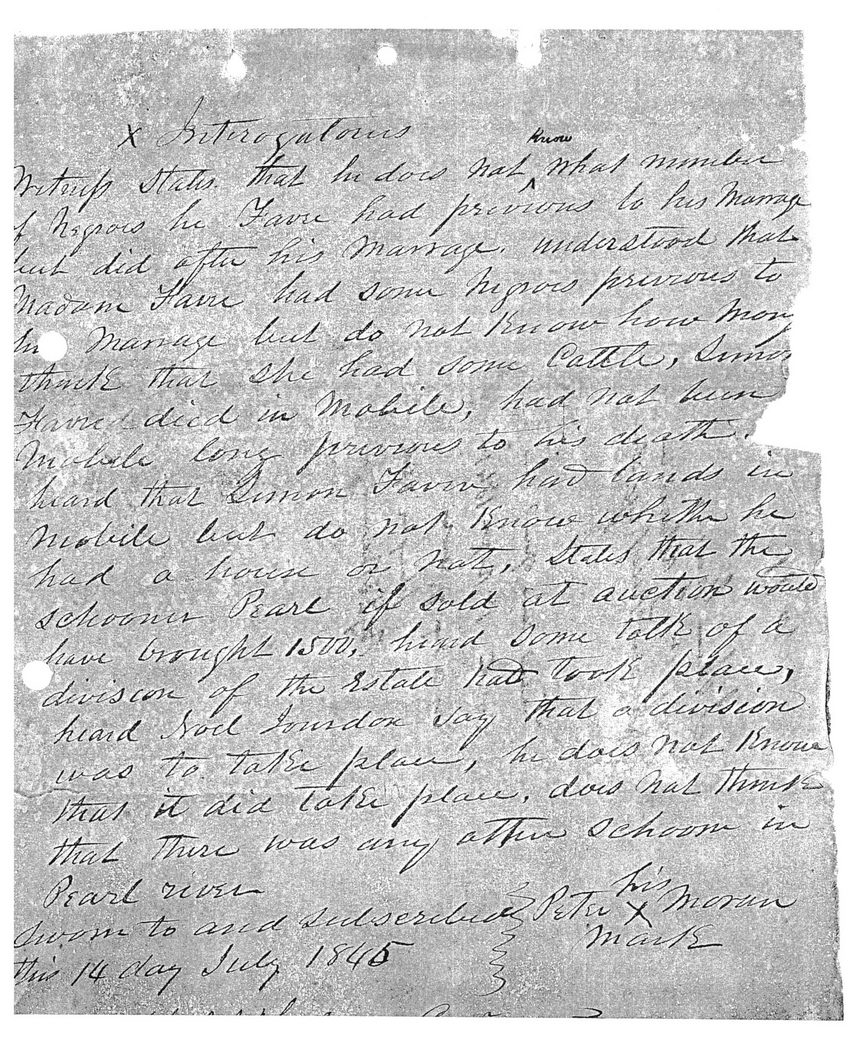 X Interogatories
Witness States. that he does not know what number
of Negroes he Favre had previous to his Marrage
but did after his Marrage. understood that
Madam Favre had some Negroes previous to
her Marrage but do not Know how Many
think that she had some Cattle, Simon
Favre died in Mobile, had not been
Mobile long previous to his death.
heard that Simon Favre had lands in
Mobile but do not Know whether he
had a house or not, States that the
schooner Pearl if sold at auction would
have brought 1500, heard some talk of a
division of the Estate had took place,
heard Noel Jourdon say that a division
was to take place, he does not Know
that it did take place, does not think
that there was any other schoonr in
Pearl river
his
Sworn to and subscribed Peter X Moran
mark
this 14 day July 1845